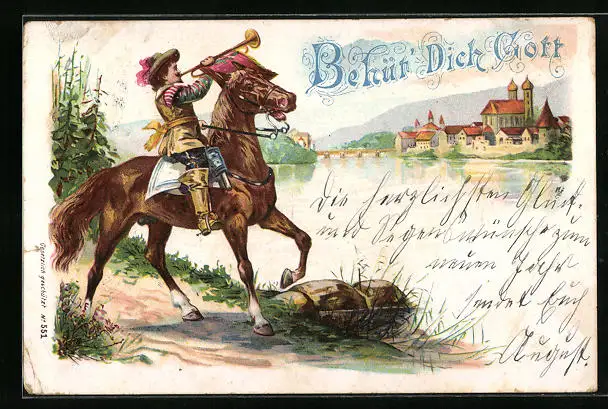 Behüt' Dich Gott
Die herzlichsten Glück-
und Segenswünsche zum
neuen Jahr
sendet Euch
August.
Gesetzlich geschützt No 551